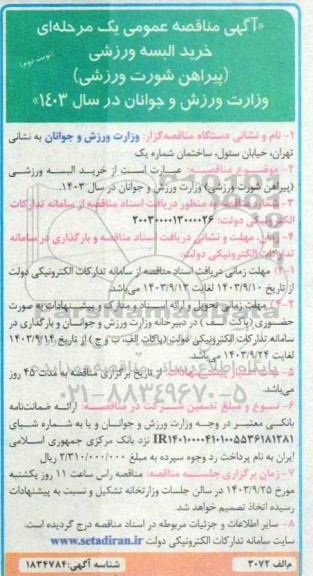 «آگهی مناقصه عمومی یک مرحله‌ای
خرید البسه ورزشی
(نوبت دوم)
(پیراهن شورت ورزشی)
وزارت ورزش و جوانان در سال ۱۴۰۳»
۱- نام و نشانی دستگاه مناقصه‌گزار: وزارت ورزش و جوانان به نشانی
تهران، خیابان سئول، ساختمان شماره یک
۲- موضوع مناقصه: عبارت است از خرید البسه ورزشی
(پیراهن شورت ورزشی) وزارت ورزش و جوانان در سال ۱۴۰۳.
۳- شماره مناقصه به منظور دریافت اسناد مناقصه از سامانه تدارکات
الکترونیکی دولت: ۲۰۰۳۰۰۰۰۱۳۰۰۰۰۲۶
۴- زمان، مهلت و نشانی دریافت اسناد مناقصه و بارگذاری در سامانه
تدارکات الکترونیکی دولت:
۴-۱) مهلت زمانی دریافت اسناد مناقصه از سامانه تدارکات الکترونیکی دولت
از تاریخ ۱۴۰۳/۹/۱۰ لغایت ۱۴۰۳/۹/۱۳ می‌باشد.
۴-۲) مهلت زمانی تحویل و ارائه اسناد و مدارک و پیشنهادات به صورت
حضوری (پاکت الف) در دبیرخانه وزارت ورزش و جوانان و بارگذاری در
سامانه تدارکات الکترونیکی دولت (پاکات الف، ب و ج) از تاریخ ۱۴۰۳/۹/۱۴
لغایت ۱۴۰۳/۹/۲۴ می‌باشد.
۵- مدت اعتبار پیشنهادات: از تاریخ برگزاری مناقصه به مدت ۴۵ روز
می‌باشد.
۰۲۱-۸۸۳۴۹۶۷۰-۵
۶- نوع و مبلغ تضمین شرکت در مناقصه: ارائه ضمانتنامه
بانکی معتبر در وجه وزارت ورزش و جوانان و یا به شماره شبای
IR۱۴۰۱۰۰۰۰۴۱۰۱۰۰۵۵۳۶۱۸۱۲۸۱ نزد بانک مرکزی جمهوری اسلامی
ایران به نام پرداخت رد وجوه سپرده به مبلغ ۲/۳۱۰/۰۰۰/۰۰۰ ریال
۷- زمان برگزاری جلسه مناقصه: مناقصه راس ساعت ۱۱ روز یکشنبه
مورخ ۱۴۰۳/۹/۲۵ در سالن جلسات وزارتخانه تشکیل و نسبت به پیشنهادات
رسیده اتخاذ تصمیم خواهد شد.
۸- سایر اطلاعات و جزئیات مربوطه در اسناد مناقصه درج گردیده است.
سایت سامانه تدارکات الکترونیکی دولت www.setadiran.ir
م‌الف ۳۰۷۲
شناسه آگهی: ۱۸۳۴۷۸۴